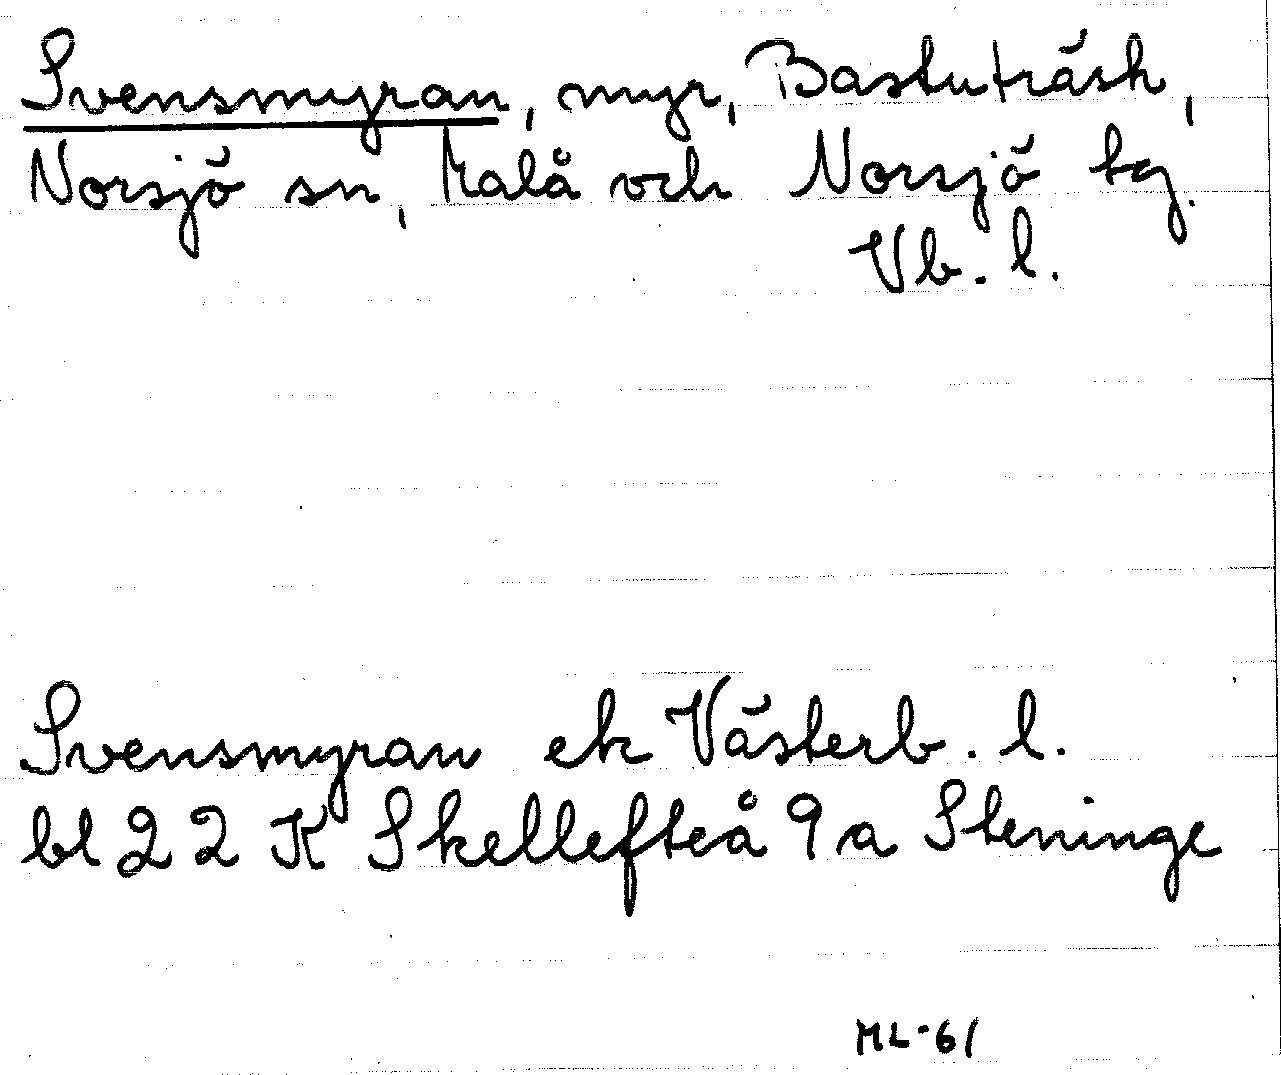 Svensmyran, myr, Bastuträsk,
Norsjö sn, Malå och Norsjö tg.
Vb. l.
Svensmyran ek Västerb. l.
bl 22 K Skellefteå 9 a Steninge
ML-61